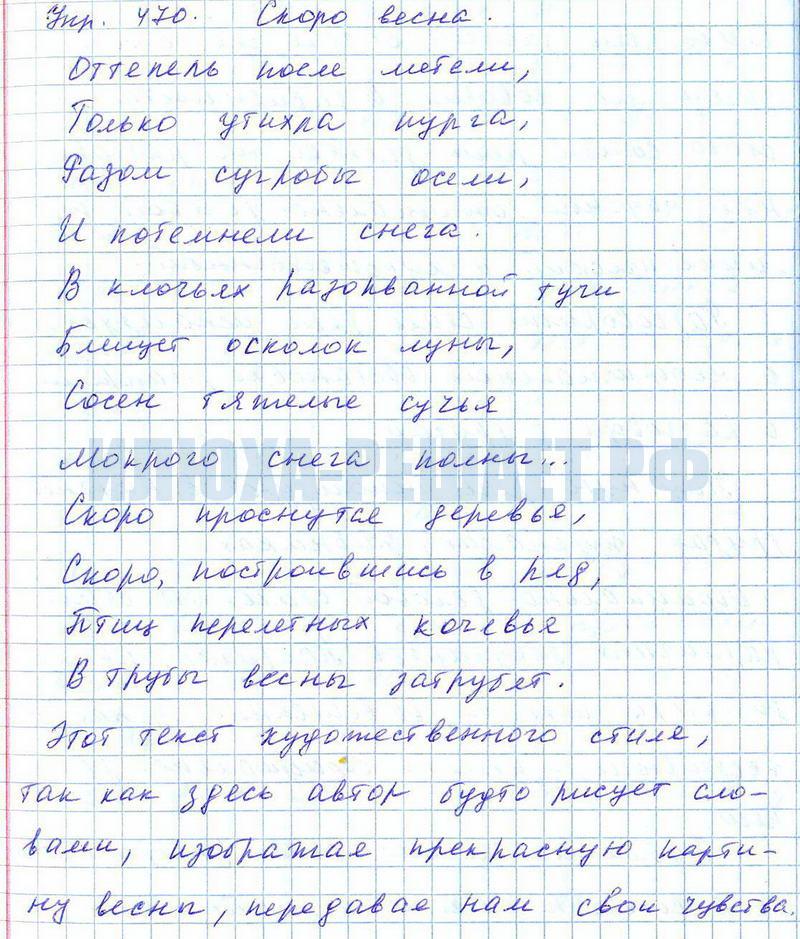 Упр. 470. Скоро весна.
Оттепель после метели,
Только утихла пурга,
Разом сугробы осели,
И потемнели снега.
В клочьях разорванной тучи
Блещет осколок луны,
Сосен тяжелые сучья
Мокрого снега полны...
ИЛЮХА-РЕШАЕТ.РФ
Скоро проснутся деревья,
Скоро, построившись в ряд,
Птиц перелетных кочевья
В трубы весны затрубят.
Этот текст художественного стиля,
так как здесь автор будто рисует сло-
вами, изображая прекрасную карти-
ну весны, передавая нам свои чувства.